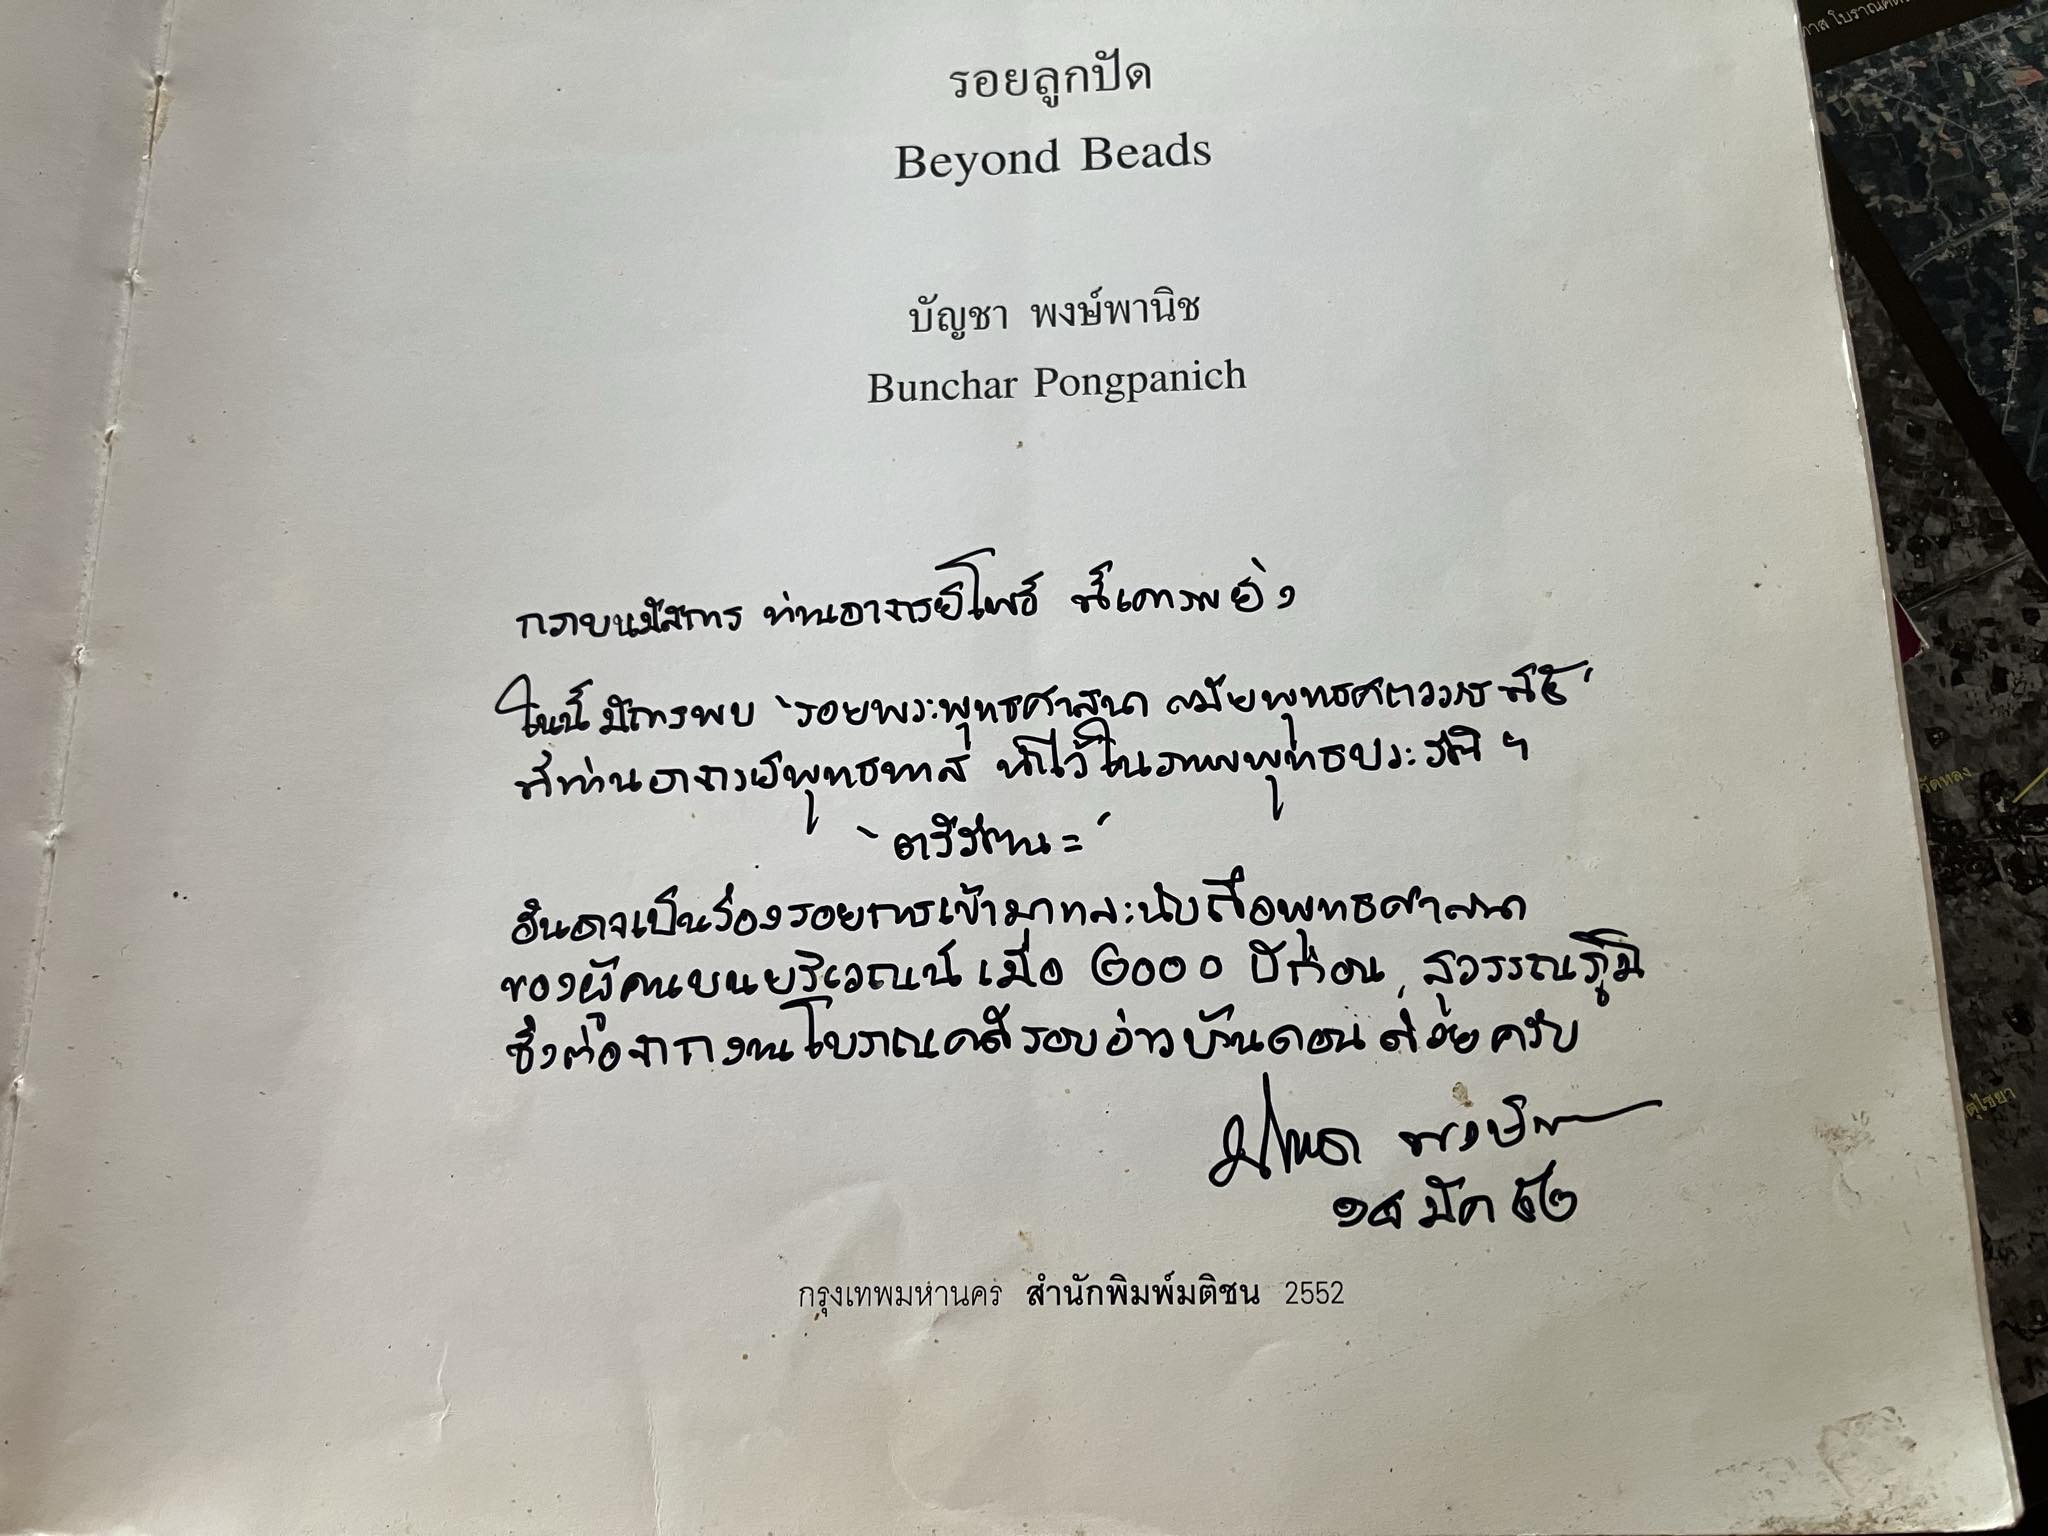 รอยลูกปัด
Beyond Beads
บัญชา พงษ์พานิช
Bunchar Pongpanich
กราบนมัสการ ท่านอาจารย์โพธิ์ ที่เคารพยิ่ง
ในนี้ มีการพบ 'รอยพระพุทธศาสนา สมัยพุทธศตวรรษ
ที่ท่านอาจารย์พุทธทาส ทำไว้ในภาพพุทธประวัติ ฯ
'ตรีรัตนะ'
อันอาจเป็นร่องรอยการเข้ามาและนับถือพุทธศาสนา
ของผู้คนบนบริเวณนี้ เมื่อ ๒๐๐๐ ปีก่อน สุวรรณภูมิ
ซึ่งต่อจากงานโบราณคดีรอบอ่าวบ้านดอน ด้วยครับ
บัญชา พงษ์พานิช
๑๘ มีค ๕๒
กรุงเทพมหานคร สำนักพิมพ์มติชน 2552
วัดหลง